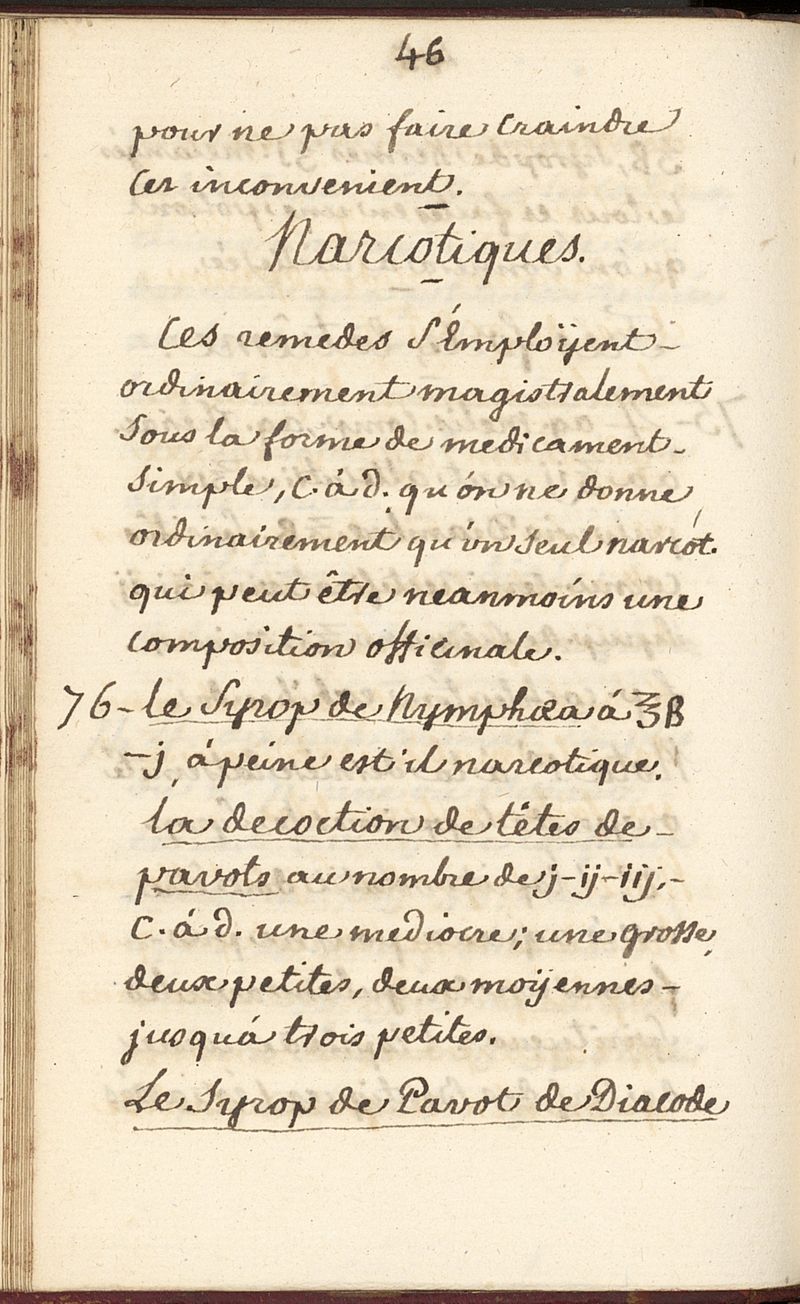 46
pour ne pas faire craindre
cet inconvenient.
Narcotiques.
Ces remedes s'Emploÿent-
ordinairement magistralement
Sous la forme de medicament-
simple, C. á d. qu'on ne donne
ordinairement qu'un seul narcot.
qui peut être neanmoins une
composition officinale.
76- le Syrop de Nymphæa á ℥ß
-j, á peine est'il narcotique.
la decoction de têtes de-
pavots au nombre de j-ij-iij,-
C. á d. une mediocre; une grosse,
deux petites, deux moÿennes-
jusquá trois petites.
Le Syrop de Pavot de Diacode